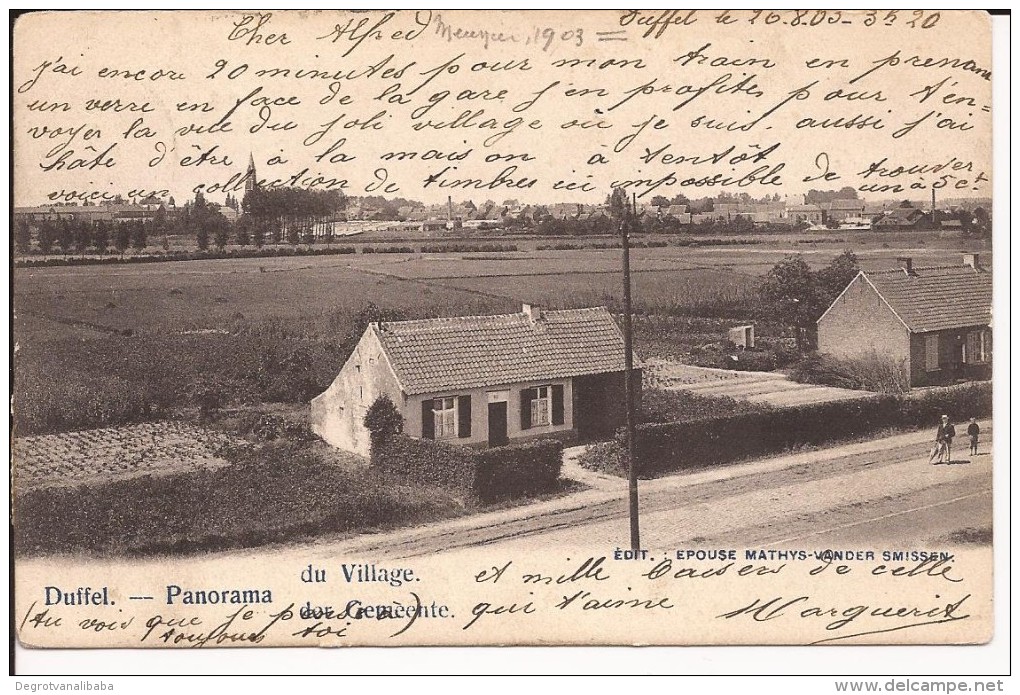 Duffel le 26.8.03 - 3h 20
Cher Alfred
Meunier, 1903
J'ai encore 20 minutes pour mon train en prenant
un verre en face de la gare j'en profites pour t'en=
voyer la vue du joli village où je suis. aussi j'ai
hâte d'être à la maison à tentôt de trouver
voici un collection de timbres ici impossible un à 5ct
ÉDIT. : EPOUSE MATHYS-VANDER SMISSEN.
Duffel. — Panorama
du Village.
der Gemeente.
et mille baisers de celle
qui t'aime Marguerit
(tu vois que je pense à
toujours toi)
Degrotvanalibaba
http://www.delcampe.net